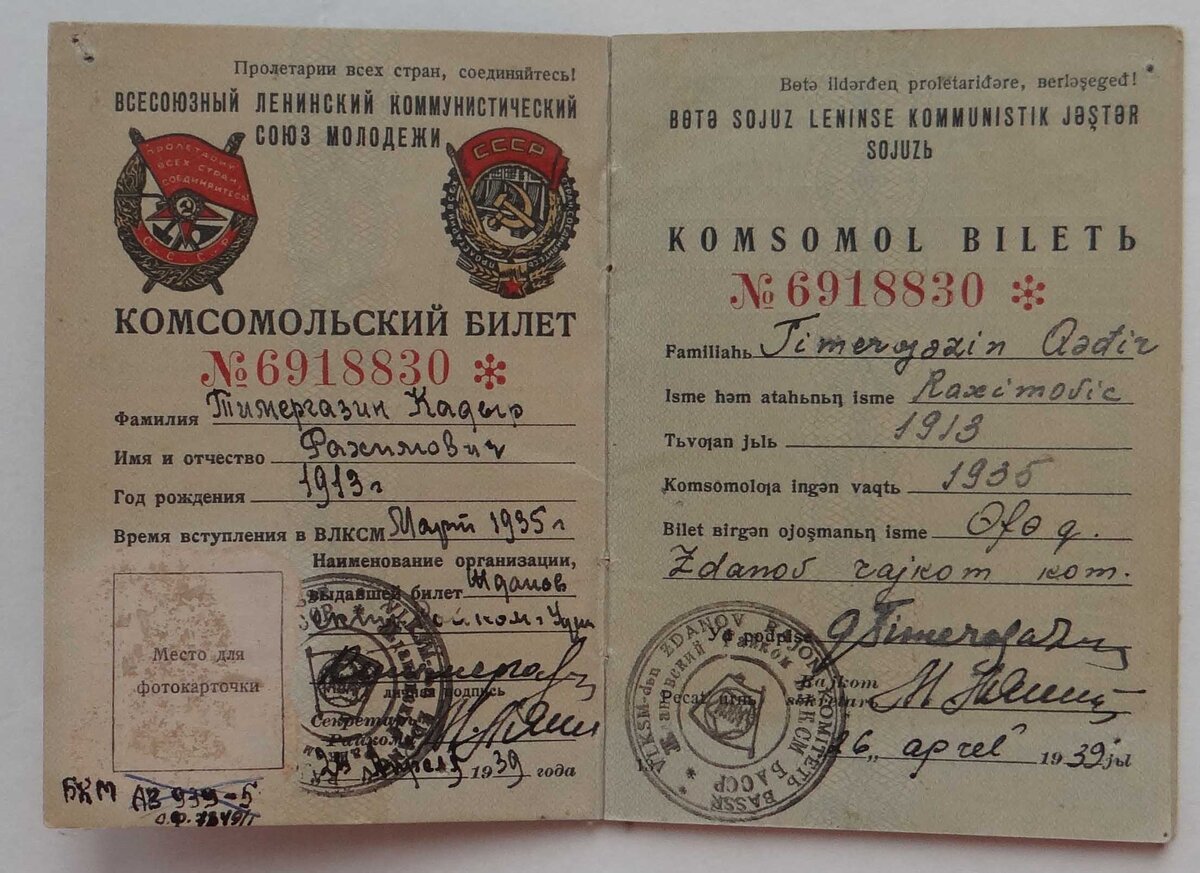 Пролетарии всех стран, соединяйтесь!
ВСЕСОЮЗНЫЙ ЛЕНИНСКИЙ КОММУНИСТИЧЕСКИЙ
СОЮЗ МОЛОДЕЖИ
ПРОЛЕТАРИИ
ВСЕХ СТРАН,
СОЕДИНЯЙТЕСЬ!
С.С.С.Р.
СССР
КОМСОМОЛЬСКИЙ БИЛЕТ
№ 6918830
Фамилия Тимергазин Кадыр
Имя и отчество Рахимович
Год рождения 1913 г
Время вступления в ВЛКСМ Март 1935 г
Наименование организации,
выдавшей билет Жданов
Место для
фотокарточки
личная подпись
Секретарь
Райкома
1939 года
БКМ АВ 939-5
Bɵtə ildərđeꞑ proletariđəre, ʙerləşegeđ!
BɵTə SOJUZ LENINSE KOMMUNISTIK JəŞTəR
SOJUZЬ
KOMSOMOL BILETЬ
№ 6918830
Familiahь Timerƣəzin Qəđir
Isme həm atahьnьꞑ isme Rəximoviс
Tьvƣan jьlь 1913
Komsomolƣa ingən vaqtь 1935
Bilet ʙirgən ojoşmanьꞑ isme Ɵfɵ q.
Zdanov rajkom kom.
Yđ podpise
Rajkom
sekretarь
Pecat urnь
VLKSM-dьn ZDANOV RAJON KOMITETЬ BASSR
Ждановский Райком ВЛКСМ БАССР
26 „ aprel 1939 jьl